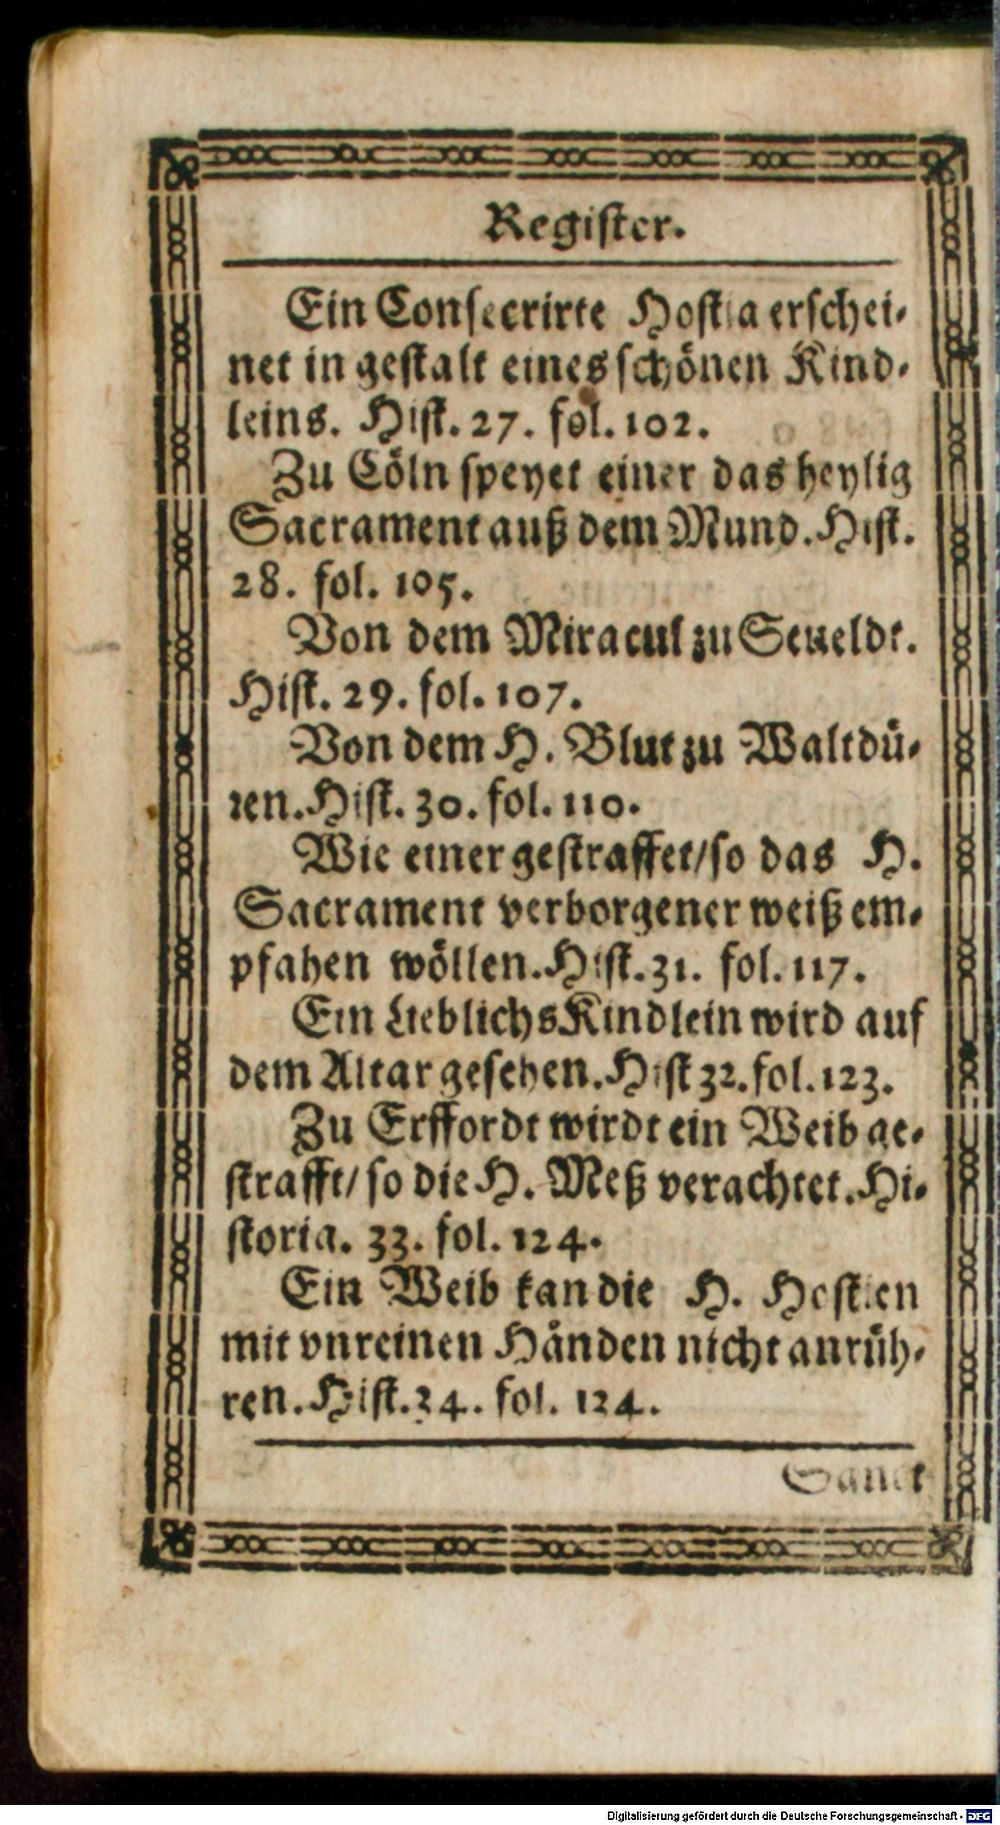 Register.
Ein Consecrirte Hostia erschei-
net in gestalt eines schönen Kind-
leins. Hist. 27. fol. 102.
Zu Cöln speyet einer das heylig
Sacrament auß dem Mund. Hist.
28. fol. 105.
Von dem Miracul zu Seueldt.
Hist. 29. fol. 107.
Von dem H. Blut zu Waltdü-
ren. Hist. 30. fol. 110.
Wie einer gestraffet/ so das H.
Sacrament verborgener weiß em-
pfahen wöllen. Hist. 31. fol. 117.
Ein Lieblichs Kindlein wird auf
dem Altar gesehen. Hist 32. fol. 123.
Zu Erffordt wirdt ein Weib ge-
strafft/ so die H. Meß verachtet. Hi-
storia. 33. fol. 124.
Ein Weib kan die H. Hostien
mit vnreinen Händen nicht anrüh-
ren. Hist. 34. fol. 124.
Sanct
Digitalisierung gefördert durch die Deutsche Forschungsgemeinschaft - DFG